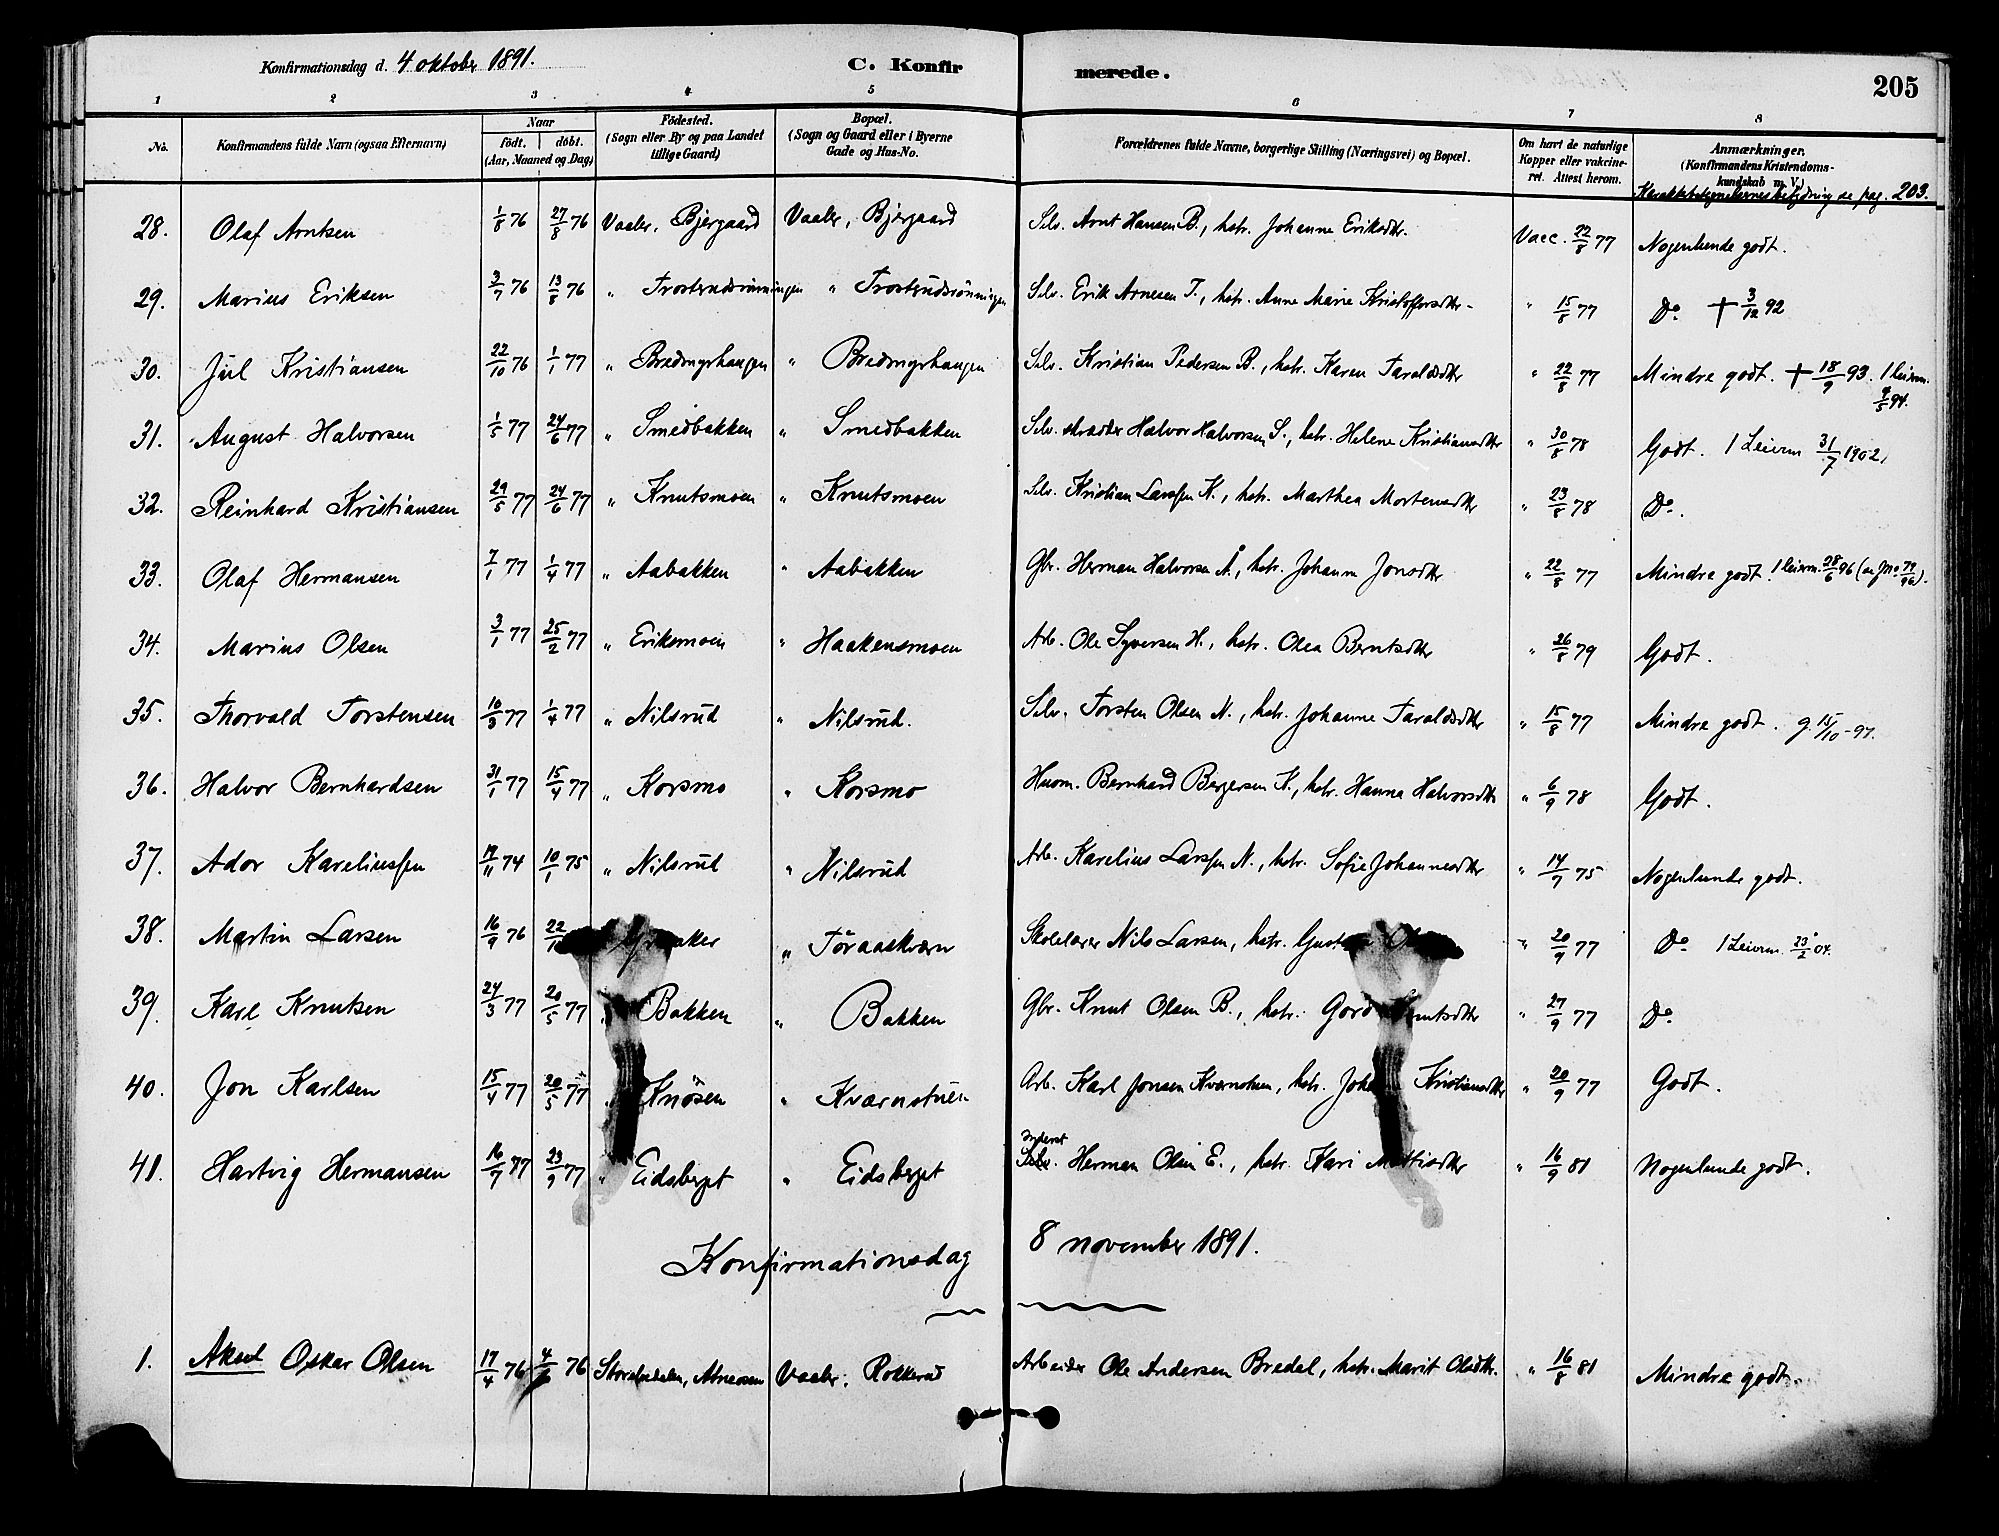 Konfirmationsdag d. 4 oktober 1891. C. Konfir merede. 205
1 2 3 4 5 6 7 8
No. Konfirmandens fulde Navn (ogsaa Efternavn) Naar födt. döbt. (Aar, Maaned og Dag) Födested. (Sogn eller By og paa Landet tillige Gaard) Bopæl. (Sogn og Gaard eller i Byerne Gade og Hus-No. Forældrenes fulde Navne, borgerlige Stilling (Næringsvei) og Bopæl. Om havt de naturlige Kopper eller vakcineret. Attest herom. Anmærkninger. (Konfirmandens Kristendomskundskab m. V.) se pag. 203.
28. Olaf Arntsen 1/8 76 27/8 76 Vaaler, Bjergaard Vaaler, Bjergaard Selv. Arnt Hansen B., hstr. Johanne Eriksdtr. Vacc. 22/8 77 Nogenlunde godt.
29. Marius Eriksen 3/7 76 13/8 76 " Trosterudsrönningen " Trosterudsrönningen Selv. Erik Arnesen T., hstr. Anne Marie Kristoffersdtr. " 15/8 77 Do. + 3/12 92
30. Jul Kristiansen 22/10 76 1/1 77 " " Selv. Kristian Pedersen B., hstr. Karen Taraldsdtr " 22/8 77 Mindre godt. + 18/9 93. 1 leierm. 9/5 94.
31. August Halvorsen 1/5 77 24/6 77 " Smedbakken " Smedbakken Selv. skrædder Halvor Halvorsen S., hstr. Helene Kristiansdtr " 30/8 78 Godt. 1 Leierm 31/7 1902.
32. Reinhard Kristiansen 29/5 77 24/6 77 " Knutsmoen " Knutsmoen Selv. Kristian Larssen K., hstr. Marthea Mortensdtr " 23/8 78 Do.
33. Olaf Hermansen 7/1 77 1/4 77 " Aabakken " Aabakken Gbr. Herman Halvorsen Å., hstr. Johanne Jonsdtr " 22/8 77 Mindre godt. 1 leierm. 28/6 96
34. Marius Olsen 3/1 77 25/2 77 " Eriksmoen " Haakensmoen Arb. Ole Syversen H., hstr. Olea Berntsdtr " 26/8 79 Godt.
35. Thorvald Torstensen 10/3 77 1/4 77 " Nilsrud " Nilsrud. Selv. Torsten Olsen N., hstr. Johanne Taraldsdtr " 15/8 77 Mindre godt. g. 15/10 -97.
36. Halvor Bernhardsen 31/1 77 15/4 77 " Korsmo " Korsmo Husm. Bernhard Bergersen K., hstr. Hanna Halvorsdtr " 6/9 78 Godt.
37. Ador Kareliussen 19/11 74 10/1 75 " Nilsrud " Nilsrud Arb. Karelius Larssen N., hstr. Sofie Johannesdtr " 14/9 75 Nogenlunde godt.
38. Martin Larsen 16/9 76 22/ " Töraaskværn Skolelærer Nils Larsen, hstr. " 20/9 77 Do. 1 Leierm. 23/2 04.
39. Karl Knutsen 24/3 77 20/5 77 Bakken " Bakken Gbr. Knut Olsen B., hstr. " 27/9 77 Do.
40. Jon Karlsen 15/4 77 20/5 77 Knösen " Kværnstuen Arb. Karl Jonsen Kværnstuen, hstr. Kristiansdtr " 20/9 77 Godt.
41. Hartvig Hermansen 16/7 77 23/9 77 " Eidsberget " Eidsberget Inderst Selv. Herman Olsen E., hstr. Kari " 16/9 81 Nogenlunde godt.
Konfirmationsdag 8 november 1891.
1. Aksel Oskar Olsen 17/4 76 4/6 76 Storelvedalen, Vaaler, Rokkerud Arbeider Ole Andersen Bredel, hstr. Marit Olsdtr. " 16/8 81 Mindre godt.